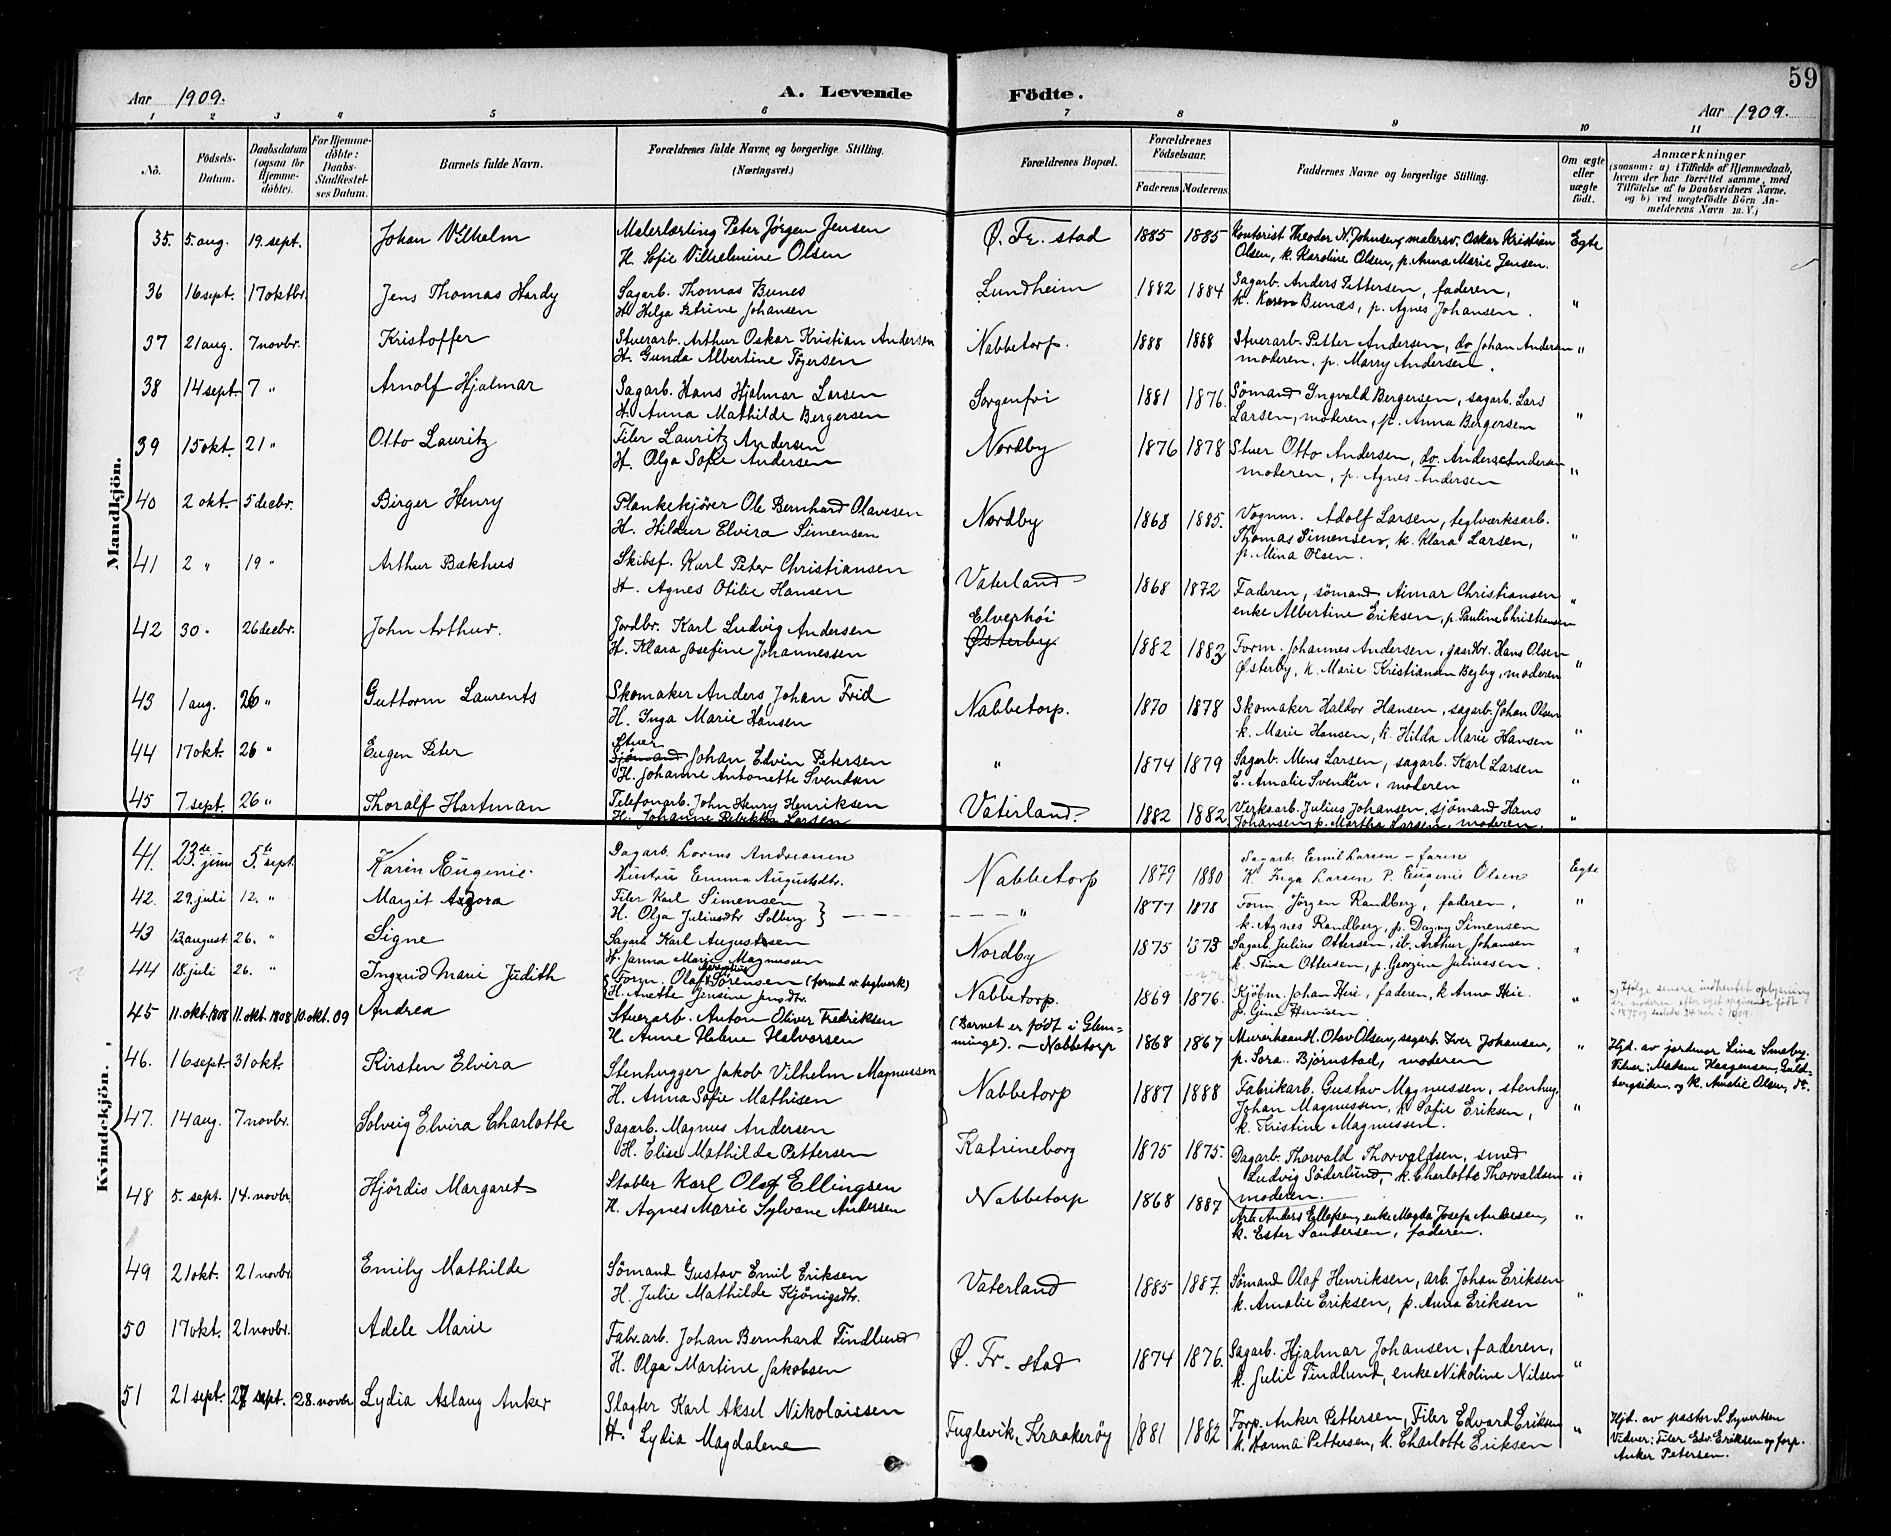 59
Aar 1909. A. Levende Födte. Aar 1909.
1 2 3 4 5 6 7 8 9 10 11
No. Födsels-Datum. Daabsdatum (ogsaa for Hjemmedöbte). For Hjemmedöbte: Daabs-Stadfæstelses Datum. Barnets fulde Navn. Forældrenes fulde Navne og borgerlige Stilling. (Næringsvei.) Forældrenes Bopæl. Forældrenes Födselsaar. Faderens Moderens. Faddernes Navne og borgerlige Stilling. Om ægte eller uægte födt. Anmærkninger (saasom: a) i Tilfælde af Hjemmedaab, hvem der har forrettet samme, med Tilföielse af to Daabsvidners Navne, og b) ved uegtefödte Börn Anmelderens Navn m. V.)
Mandkjön.
35. 5. aug. 19. sept. Johan Vilhelm Malerlærling Peter Jörgen Jensen Ø. Fr. stad 1885 1885 Kontorist Theodor N. Johnsen, malersv. Oskar Kristian Egte
H. Sofie Vilhelmine Olsen Olsen, k. Karoline Olsen, p. Anna Marie Jensen.
36 16 sept. 17 oktbr. Jens Thomas Hardy Sagarb. Thomas Bunes Lundheim 1882 1884 Sagarb. Anders Pettersen, faderen, "
H. Helga Petrine Johansen k. Karen Bunæs, p. Agnes Johansen.
37 21 aug. 7 novbr. Kristoffer Stuerarb. Arthur Oskar Kristian Andersen Nabbetorp. 1888 1888 Stuerarb. Petter Andersen, do Johan Andersen "
H. Gunda Albertine Töyersen moderen. p. Marry Andersen.
38 14 sept. 7 " Arnolf Hjalmar Sagarb. Hans Hjalmar Larsen Sorgenfri 1881 1876. Sömand Ingvald Bergersen, sagarb. Lars
H. Anna Mathilde Bergersen Larsen, moderen, p. Anna Bergersen "
39 15 okt. 21 " Otto Lauritz Filer Lauritz Andersen Nordby 1876 1878 Stuer Otto Andersen, do. Anders Andersen
H. Olga Sofie Andersen moderen, p. Agnes Andersen "
40 2 okt. 5 decbr. Birger Henry Plankekjører Ole Bernhard Olavesen Nordby 1868 1885. Vognm. Adolf Larsen, teglværksarb.
H. Hildur Elvira Simensen Thomas Simensen, k. Klara Larsen, "
p. Mina Olsen.
41 2 " 19 " Arthur Bakhus Skibsf. Karl Peter Christiansen Vaterland 1868 1872 Faderen, sömand Aimar Christiansen "
H. Agnes Otilie Hansen enke Albertine Eriksen, p. Pauline Christiansen
42 30 " 26 decbr. John Arthur. Jordbr. Karl Ludvig Andersen Elverhöi Østerby 1882 1883 Form. Johannes Andersen, gaardbr. Hans Olsen
H. Klara Josefine Johannessen Østerby, k. Marie Kristiansen Begby, moderen "
43 1 aug. 26 " Guttorm Laurents Skomaker Anders Johan Frid Nabbetorp. 1870 1878 Skomaker Haldor Hansen, sagarb. Johan Olsen
H. Inga Marie Hansen k. Marie Hansen, k. Hilda Marie Hansen "
44 17 okt. 26 " Eugen Peter Stuer Sjömand Johan Edvin Petersen " 1874 1879 Sagarb. Mens Larsen, sagarb. Karl Larsen
H. Johanne Antonette Svendsen E. Amalie Svendsen, moderen "
45 7 sept. 26 " Thoralf Hartman Telefonarb. John Henry Henriksen Vaterland. 1882 1882 Verksarb. Julius Johansen, sjömand Hans
H. Johanne Rebekka Larsen Johansen, p. Martha Larsen, moderen. "
Kvindekjön.
41. 23de juni 5te sept. Karin Eugenie. Dagarb. Lorens Andreasen Nabbetorp 1879 1880 Sagarb. Emil Larsen - faren Egte
Hustru Emma Augustdtr. K. Inga Larsen P. Eugenie Olsen
42. 29. juli 12. " Margit Asgora Filer Karl Simensen " 1877 1878 Form Jörgen Randberg, faderen, "
H. Olga Juliusdtr Solberg k. Agnes Randberg, p. Dagny Simensen
43 13 august 26. " Signe Sagarb Karl Augustesen Nordby 1875 1873 Sagarb. Julius Ottersen, ib. Arthur Johansen "
H. Janna Marie Magnussen k. Stina Ottersen, p. Georgine Juliussen.
44 18. juli 26. " Ingrid Marie Judith Form. Olaf Sörensen (formd v. teglverk) Nabbetorp. 1869 1876. Kjöbm. Johan Heie, faderen, k Anna Heie. " Ifølge senere indhentet oplysning
H. Anette Jensine
45 11. okt. 1808 11. okt. 1808 10. okt. 09 Andrea Stuerarb. Anton Oliver Fredriksen (Barnet er födt i Glemminge). - Nabbetorp 1868 1867 Murerhaandl. Olav Olsen, sagarb. Iver Johansen, " Hjd. av jordmor Lina Smeby.
H. Anne Helene Halvorsen p. Sora Bjørnstad, moderen Vidner: Malene Haagensen, Guldbergsiken, og k. Amalie Olsen, st.
46. 16 sept. 31 okt. Kirsten Elvira Stenhugger Jakob Vilhelm Magnussen Nabbetorp 1887 1888 Fabrikarb. Gustav Magnussen, stenhug.
H. Anna Sofie Mathisen Johan Magnussen, k Sofie Eriksen, "
k. Kristine Magnussen.
47. 14 aug. 7 novbr. Solveig Elvira Charlotte Sagarb. Magnus Andersen Katrineborg 1875 1875. Dagarb. Thorvald Thorvaldsen, smed
H. Elise Mathilde Pettersen Ludvig Söderlund, k. Charlotte Thorvaldsen "
moderen.
48 5. sept. 14. novbr. Hjördis Margaret Stabler Karl Olaf Ellingsen Nabbetorp 1868 1887 Arb. Anders Ellefsen, enke Magda Josefa Andersen, "
H. Agnes Marie Sylvane Andersen k. Ester Sandersen, faderen.
49 21 okt. 21 novbr. Emily Mathilde Sömand Gustav Emil Eriksen Vaterland 1885 1887. Sömand Olaf Henriksen, arb. Johan Eriksen
H. Julie Mathilde Kjönigsdtr. k. Amalie Eriksen, p. Anna Eriksen "
50 17 okt. 21 novbr. Adele Marie Fabr. arb. Johan Bernhard Findlund Ø. Fr. stad 1874 1876. Sagarb. Hjalmar Johansen, faderen,
H. Olga Martine Jakobsen k. Julie Findlund, enke Nikoline Nilsen "
51 21 sept. 27 sept. 28. novbr Lydia Aslaug Anker Slagter Karl Aksel Nikolaissen Fuglevik, Kraakeröy 1881 1882 Forp. Anker Pettersen, Filer Edvard Eriksen " Hjd. av pastor S. Syvertsen
H. Lydia Magdalene k. Hanna Pettersen, k. Charlotte Eriksen Vidner: Filer Edv. Eriksen og forp.
Anker Petersen.